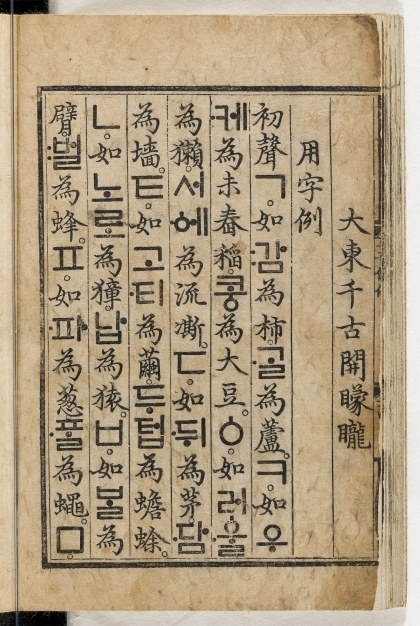 大東千古開矇矓
用字例
初聲ㄱ。如감為柿。ᄀᆞᆯ為蘆。ㅋ。如우
케為未舂稻。콩為大豆。ㆁ。如러울
為獺。서ᅌᅦ為流凘。ㄷ。如뒤為茅。담
為墻。ㅌ。如고티為繭。두텁為蟾蜍。
ㄴ。如노로為獐。납為猿。ㅂ。如ᄇᆞᆯ為
臂。벌為蜂。ㅍ。如파為葱。ᄑᆞᆯ為蠅。ㅁ。